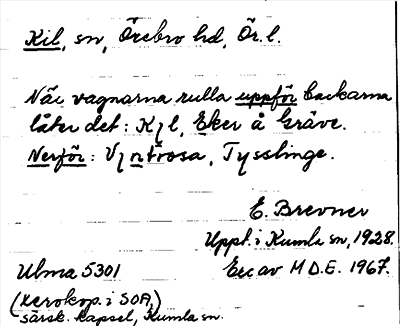 Kil, sn, Örebro hd, Ör. l.
När vagnarna rulla uppför backarna
låter det: Kyl, Eker å Gräve.
Nerför: Vyntrosa, Tysslinge.
E. Brevner
Uppt. i Kumla sn, 1928.
Ulma 5301
Exc av M D. E. 1967.
(xerokop. i SOA,)
särsk. kapsel, Kumla sn.